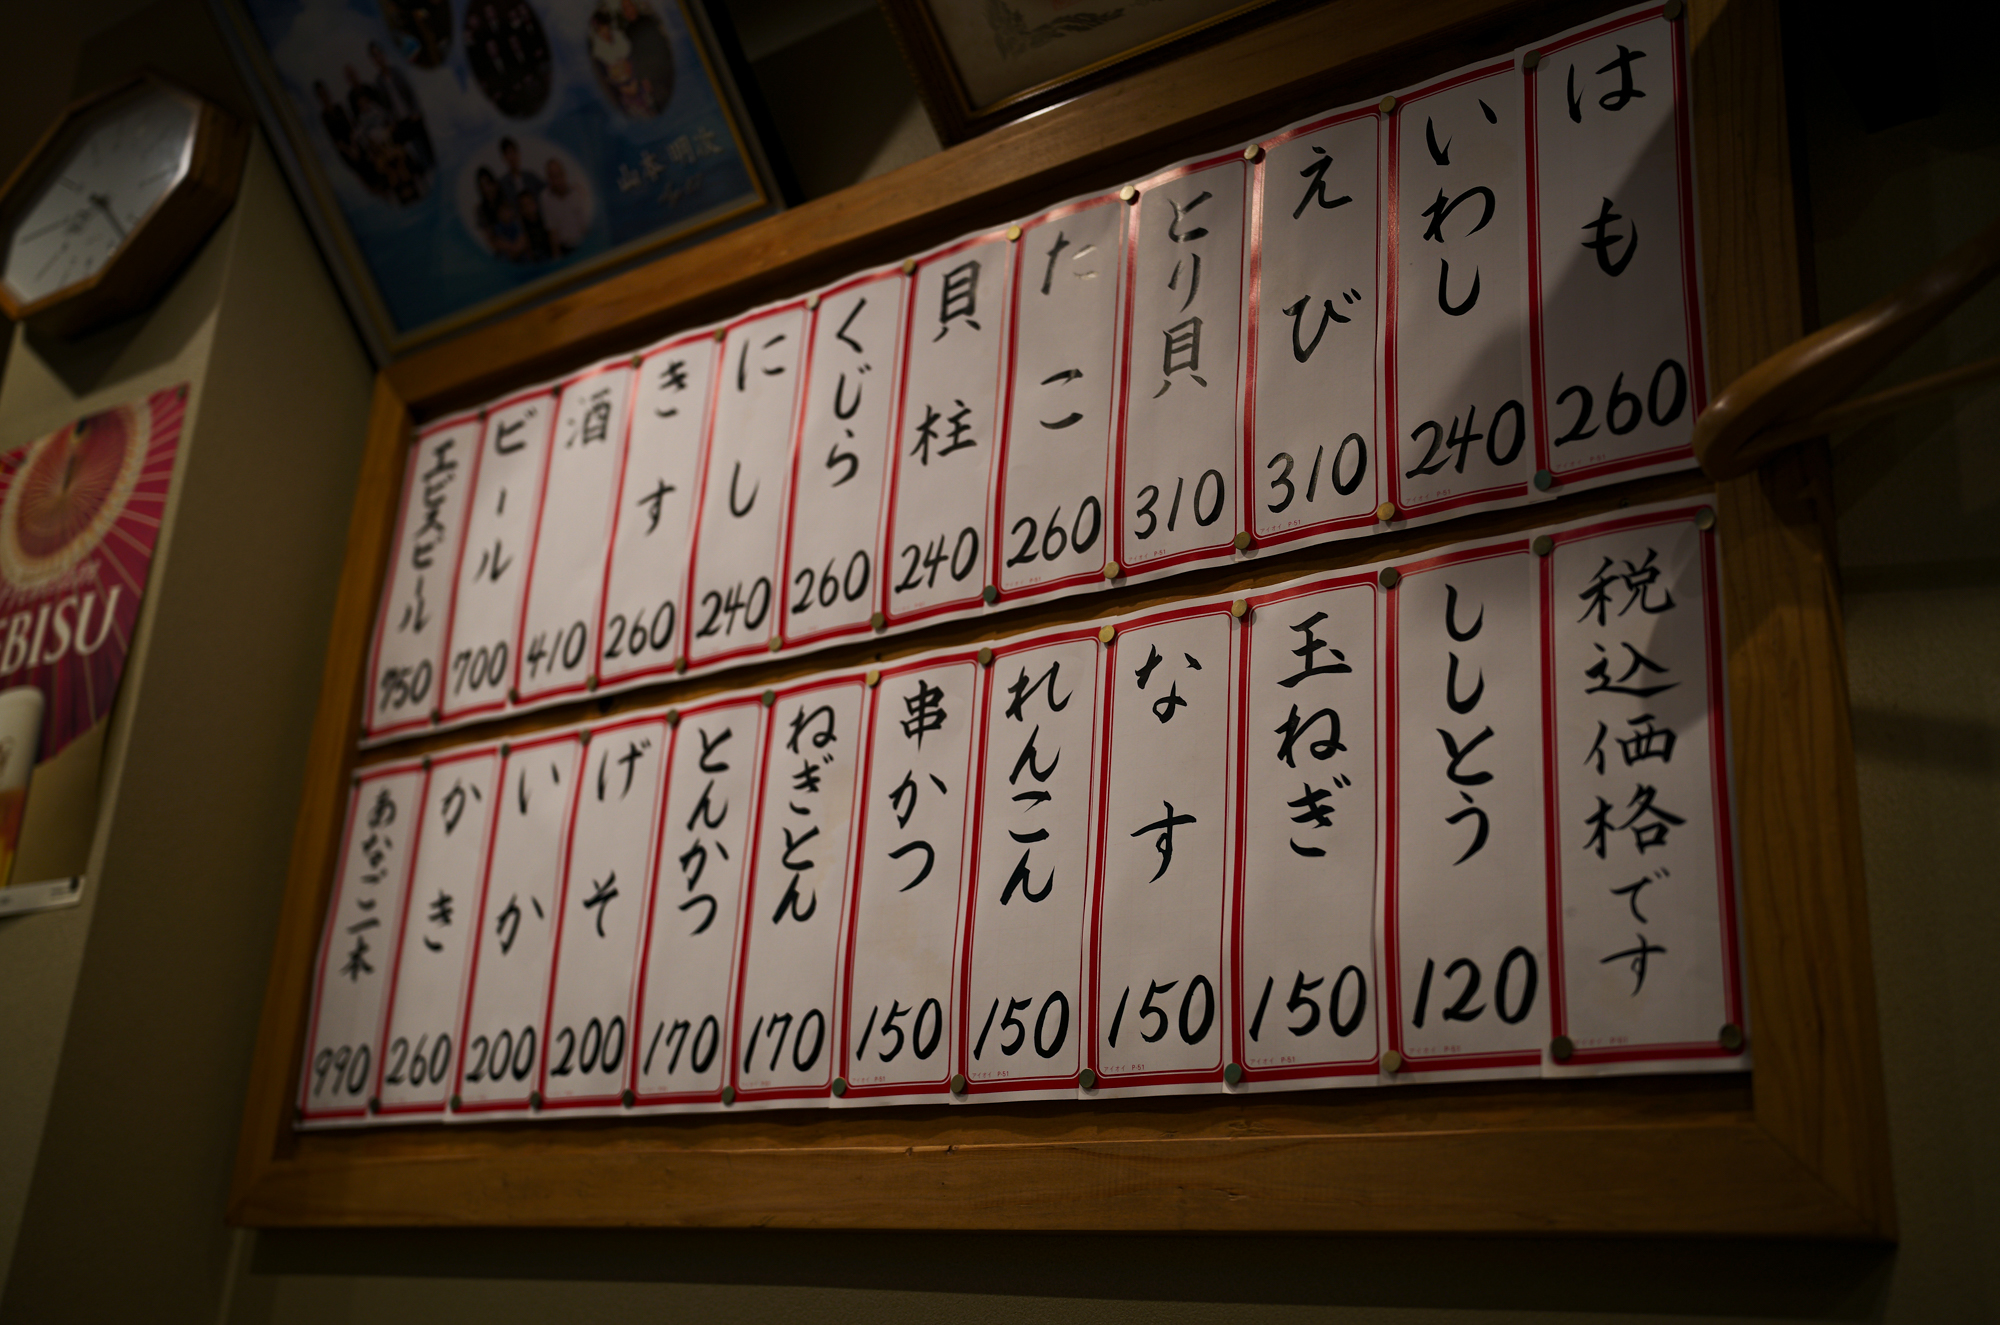 はも 260
いわし 240
えび 310
とり貝 310
たこ 260
貝柱 240
くじら 260
にし 240
きす 260
酒 410
ビール 700
エビスビール 950
税込価格です
ししとう 120
玉ねぎ 150
なす 150
れんこん 150
串かつ 150
ねぎとん 170
とんかつ 170
げそ 200
いか 200
かき 260
あなご一本 990
山本 明次
EBISU